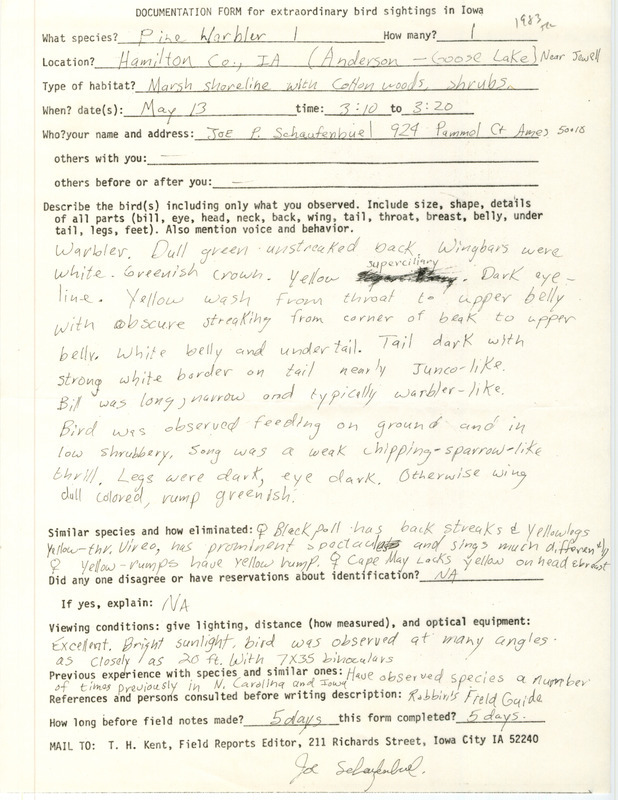 DOCUMENTATION FORM for extraordinary bird sightings in Iowa
1983
What species? Pine Warbler 1 How many? 1
Location? Hamilton Co., IA (Anderson - Goose Lake) Near Jewell
Type of habitat? Marsh shoreline with Cottonwoods, shrubs.
When? date(s): May 13 time: 3:10 to 3:20
Who? your name and address: Joe P. Schaufenbuel 924 Pammel Ct Ames 50010
others with you: —
others before or after you: —
Describe the bird(s) including only what you observed. Include size, shape, details
of all parts (bill, eye, head, neck, back, wing, tail, throat, breast, belly, under
tail, legs, feet). Also mention voice and behavior.
Warbler. Dull green unstreaked back. Wingbars were
white. Greenish crown. Yellow superciliary. Dark eye-
line. Yellow wash from throat to upper belly
with obscure streaking from corner of beak to upper
belly. White belly and undertail. Tail dark with
strong white border on tail nearly Junco-like.
Bill was long, narrow and typically warbler-like.
Bird was observed feeding on ground and in
low shrubbery. Song was a weak chipping-sparrow-like
thrill. Legs were dark, eye dark. Otherwise wing
dull colored, rump greenish.
Similar species and how eliminated: ♀ Blackpoll has back streaks & Yellow legs
Yellow-thr. Vireo, has prominent spectacles and sings much differently
♀ Yellow-rumps have yellow rump. ♀ Cape May Lacks yellow on head & breast
Did any one disagree or have reservations about identification? NA
If yes, explain: NA
Viewing conditions: give lighting, distance (how measured), and optical equipment:
Excellent. Bright sunlight, bird was observed at many angles.
as closely as 20 ft. With 7X35 binoculars
Previous experience with species and similar ones: Have observed species a number
of times previously in N. Carolina and Iowa
References and persons consulted before writing description: Robbin's Field Guide
How long before field notes made? 5 days this form completed? 5 days.
MAIL TO: T. H. Kent, Field Reports Editor, 211 Richards Street, Iowa City IA 52240
Joe Schaufenbuel.